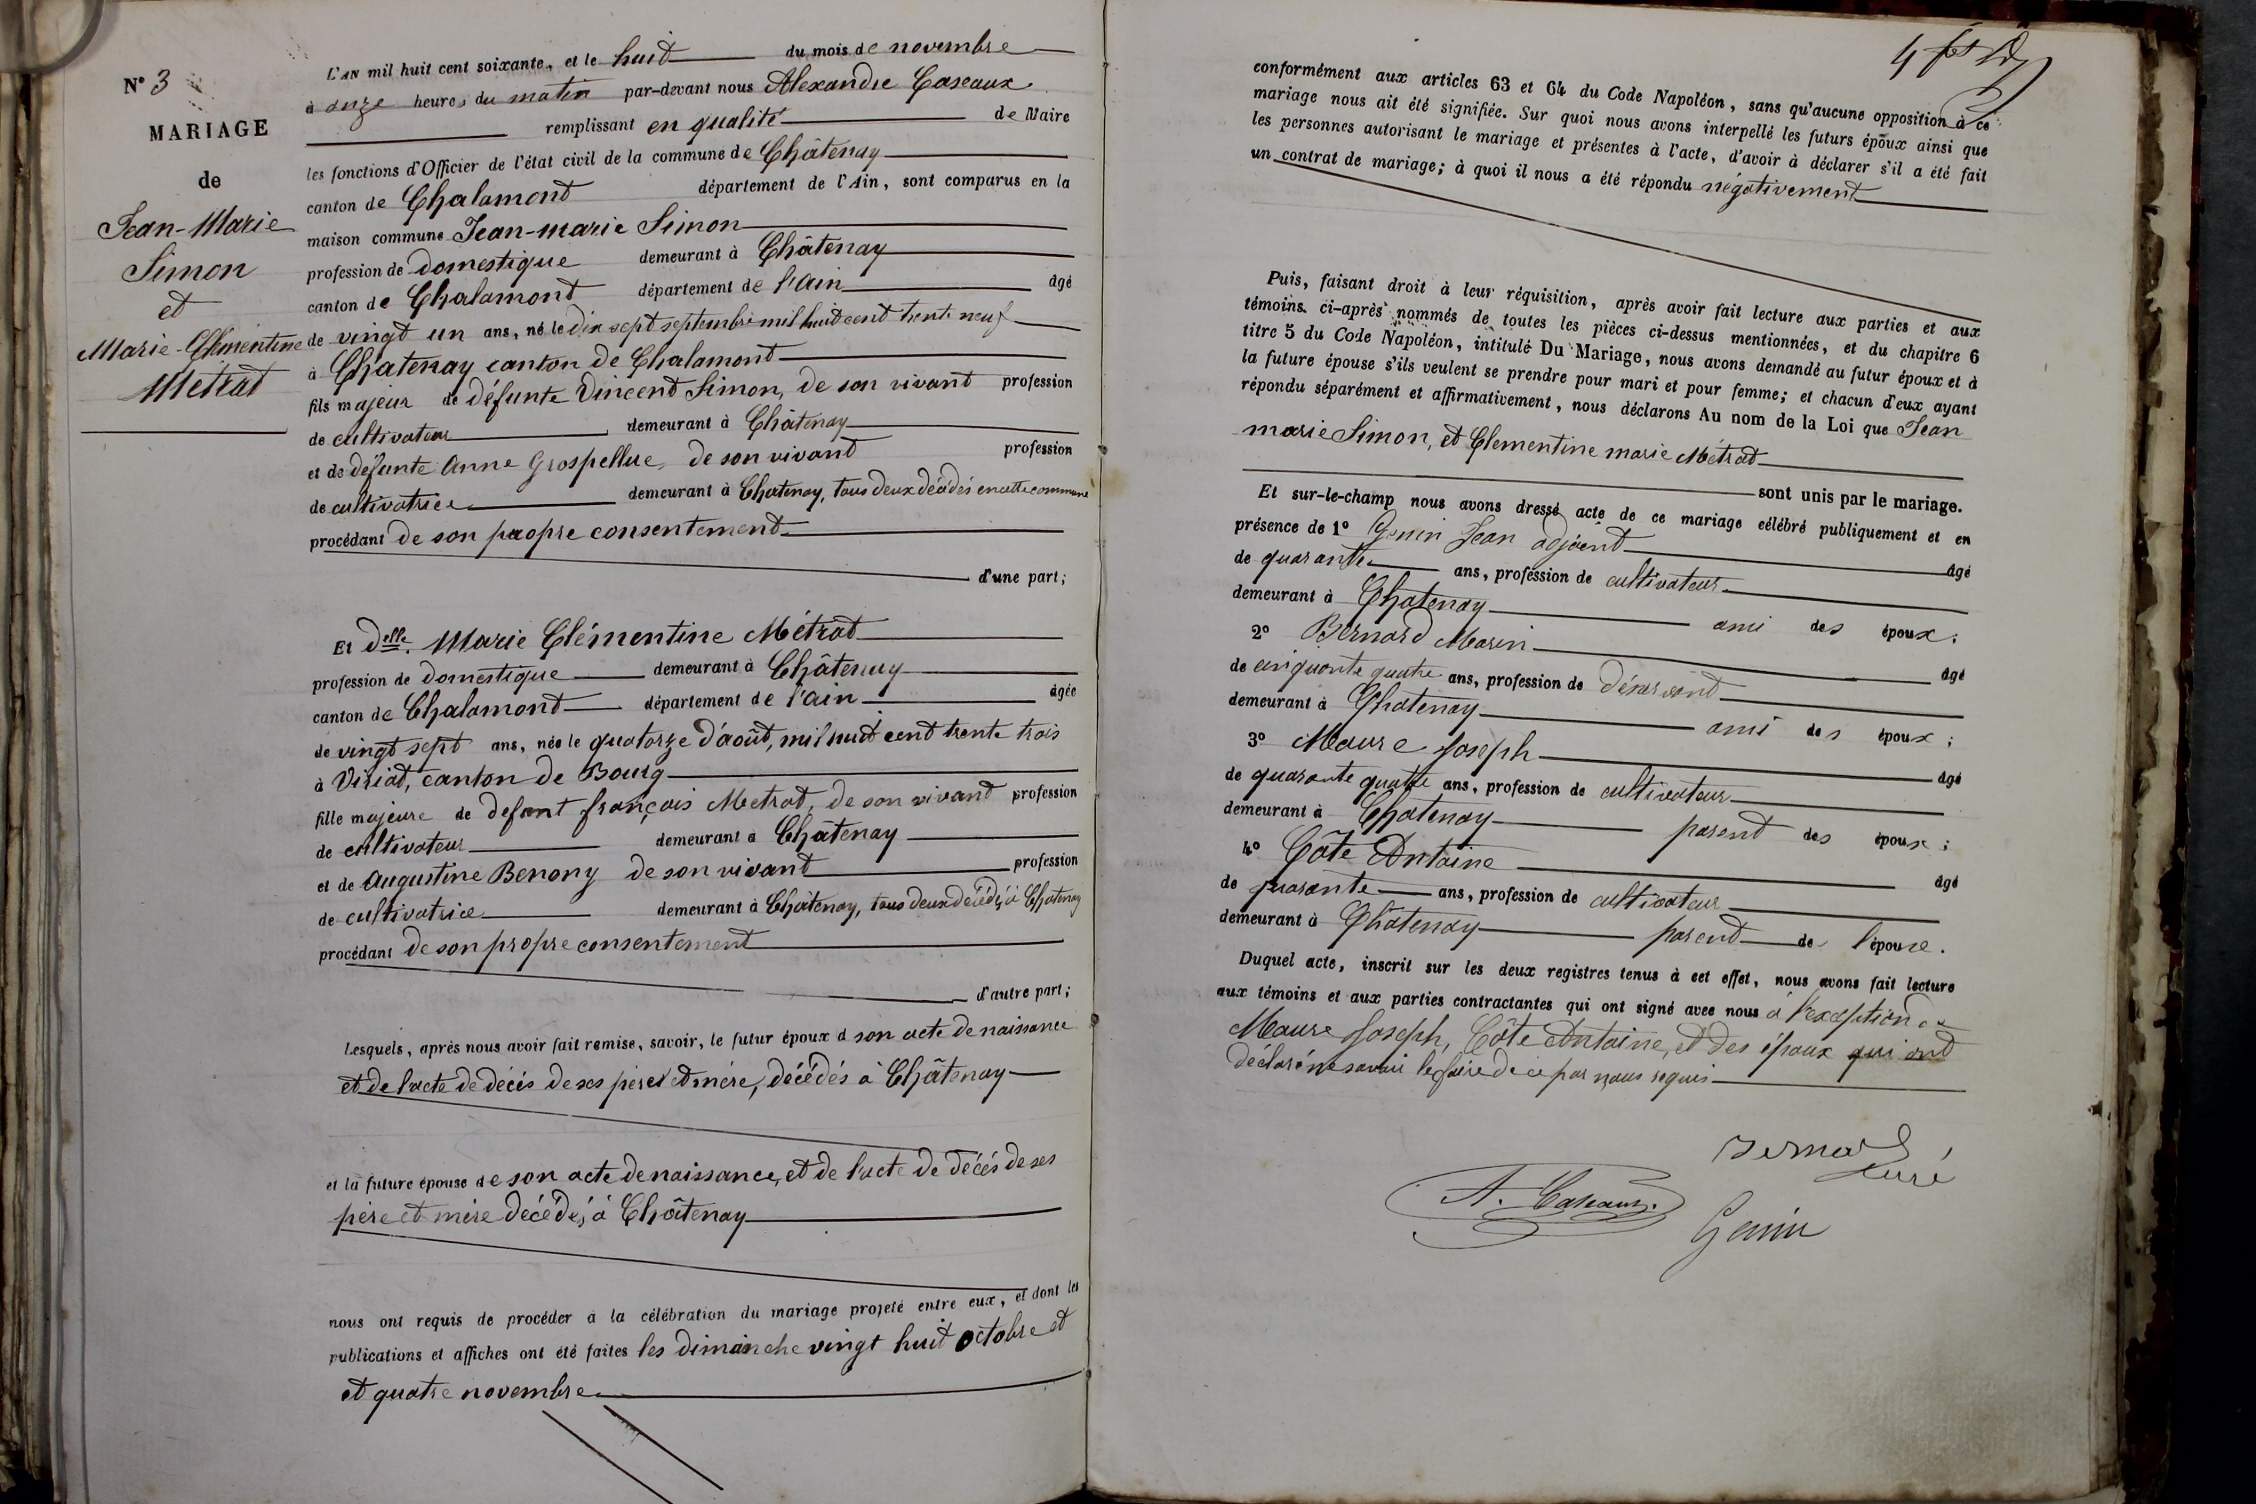 N° 3
MARIAGE
de
Jean-Marie
Simon
et
Marie-Clémentine
Métrat
L'AN mil huit cent soixante, et le huit du mois de novembre
à onze heures du matin par-devant nous Alexandre Caseaux
remplissant en qualité de Maire
les fonctions d'Officier de l'état civil de la commune de Châtenay
canton de Chalamont département de l'Ain, sont comparus en la
maison commune Jean-marie Simon
profession de domestique demeurant à Châtenay
canton de Chalamont département de l'ain âgé
de vingt un ans, né le dix sept septembre mil huit cent trente neuf
à Chatenay canton de Chalamont
fils majeur de défunte Vincent Simon, de son vivant profession
de cultivateur demeurant à Châtenay
et de défunte Anne Grospellue, de son vivant profession
de cultivatrice demeurant à Chatenay, tous deux décédés en cette commune
procédant de son propre consentement
d'une part;
Et Delle. Marie Clémentine Métrat
profession de domestique demeurant à Châtenay
canton de Chalamont département de l'ain âgée
de vingt sept ans, née le quatorze d'août, mil huit cent trente trois
à Viriat, canton de Bourg
fille majeure de defunt françois Metrat, de son vivant profession
de cultivateur demeurant à Châtenay
et de Augustine Benony de son vivant profession
de cultivatrice demeurant à Châtenay, tous deux décédés à Chatenay
procédant de son propre consentement
d'autre part;
Lesquels, après nous avoir fait remise, savoir, le futur époux d son acte de naissance
et de l'acte de décès de ses pères et mère, décédés à Châtenay
et la future épouse de son acte de naissance, et de l'acte de décés de ses
père et mère décédés à Châtenay
nous ont requis de procéder à la célébration du mariage projeté entre eux, et dont les
publications et affiches ont été faites les dimanche vingt huit octobre et
et quatre novembre
conformément aux articles 63 et 64 du Code Napoléon, sans qu'aucune opposition à ce
mariage nous ait été signifiée. Sur quoi nous avons interpellé les futurs époux ainsi que
les personnes autorisant le mariage et présentes à l'acte, d'avoir à déclarer s'il a été fait
un contrat de mariage; à quoi il nous a été répondu négativement
Puis, faisant droit à leur réquisition, après avoir fait lecture aux parties et aux
témoins ci-après nommés de toutes les pièces ci-dessus mentionnées, et du chapitre 6
titre 5 du Code Napoléon, intitulé Du Mariage, nous avons demandé au futur époux et à
la future épouse s'ils veulent se prendre pour mari et pour femme; et chacun d'eux ayant
répondu séparément et affirmativement, nous déclarons Au nom de la Loi que Jean
marie Simon, et Clementine marie Métrat
sont unis par le mariage.
Et sur-le-champ nous avons dressé acte de ce mariage célébré publiquement et en
présence de 1° Genin Jean adjoint âgé
de quarante ans, profession de cultivateur
demeurant à Chatenay ami des époux;
2° Bernard Marin âgé
de cinquante quatre ans, profession de désservant
demeurant à Chatenay ami des époux;
3° Maure Joseph âgé
de quarante quatre ans, profession de cultivateur
demeurant à Chatenay parent des époux;
4° Côte Antoine âgé
de quarante ans, profession de cultivateur
demeurant à Châtenay parent de l'épouse.
Duquel acte, inscrit sur les deux registres tenus à cet effet, nous avons fait lecture
aux témoins et aux parties contractantes qui ont signé avec nous à l'exception de
Maure Joseph, Côte Antoine, et des époux qui ont
déclaré ne savoir le faire de ce par nous requis
Bernard
curé
A. Caseaux.
Genin